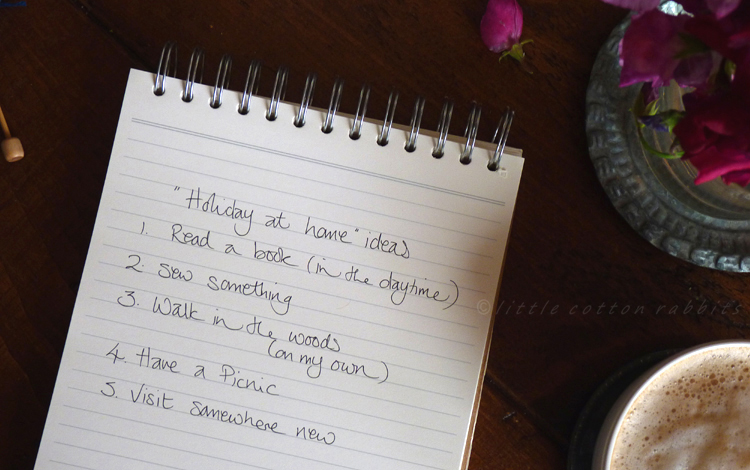 "Holiday at home" ideas
1. Read a book (in the daytime)
2. Sew something
3. Walk in the woods
(on my own)
4. Have a Picnic
5. Visit somewhere new
© little cotton rabbits